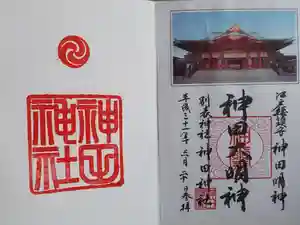 江戸総鎮守 神田明神
神田大明神
別表神社 神田神社
平成二十一年 三月 二十日参拝
神田
神社